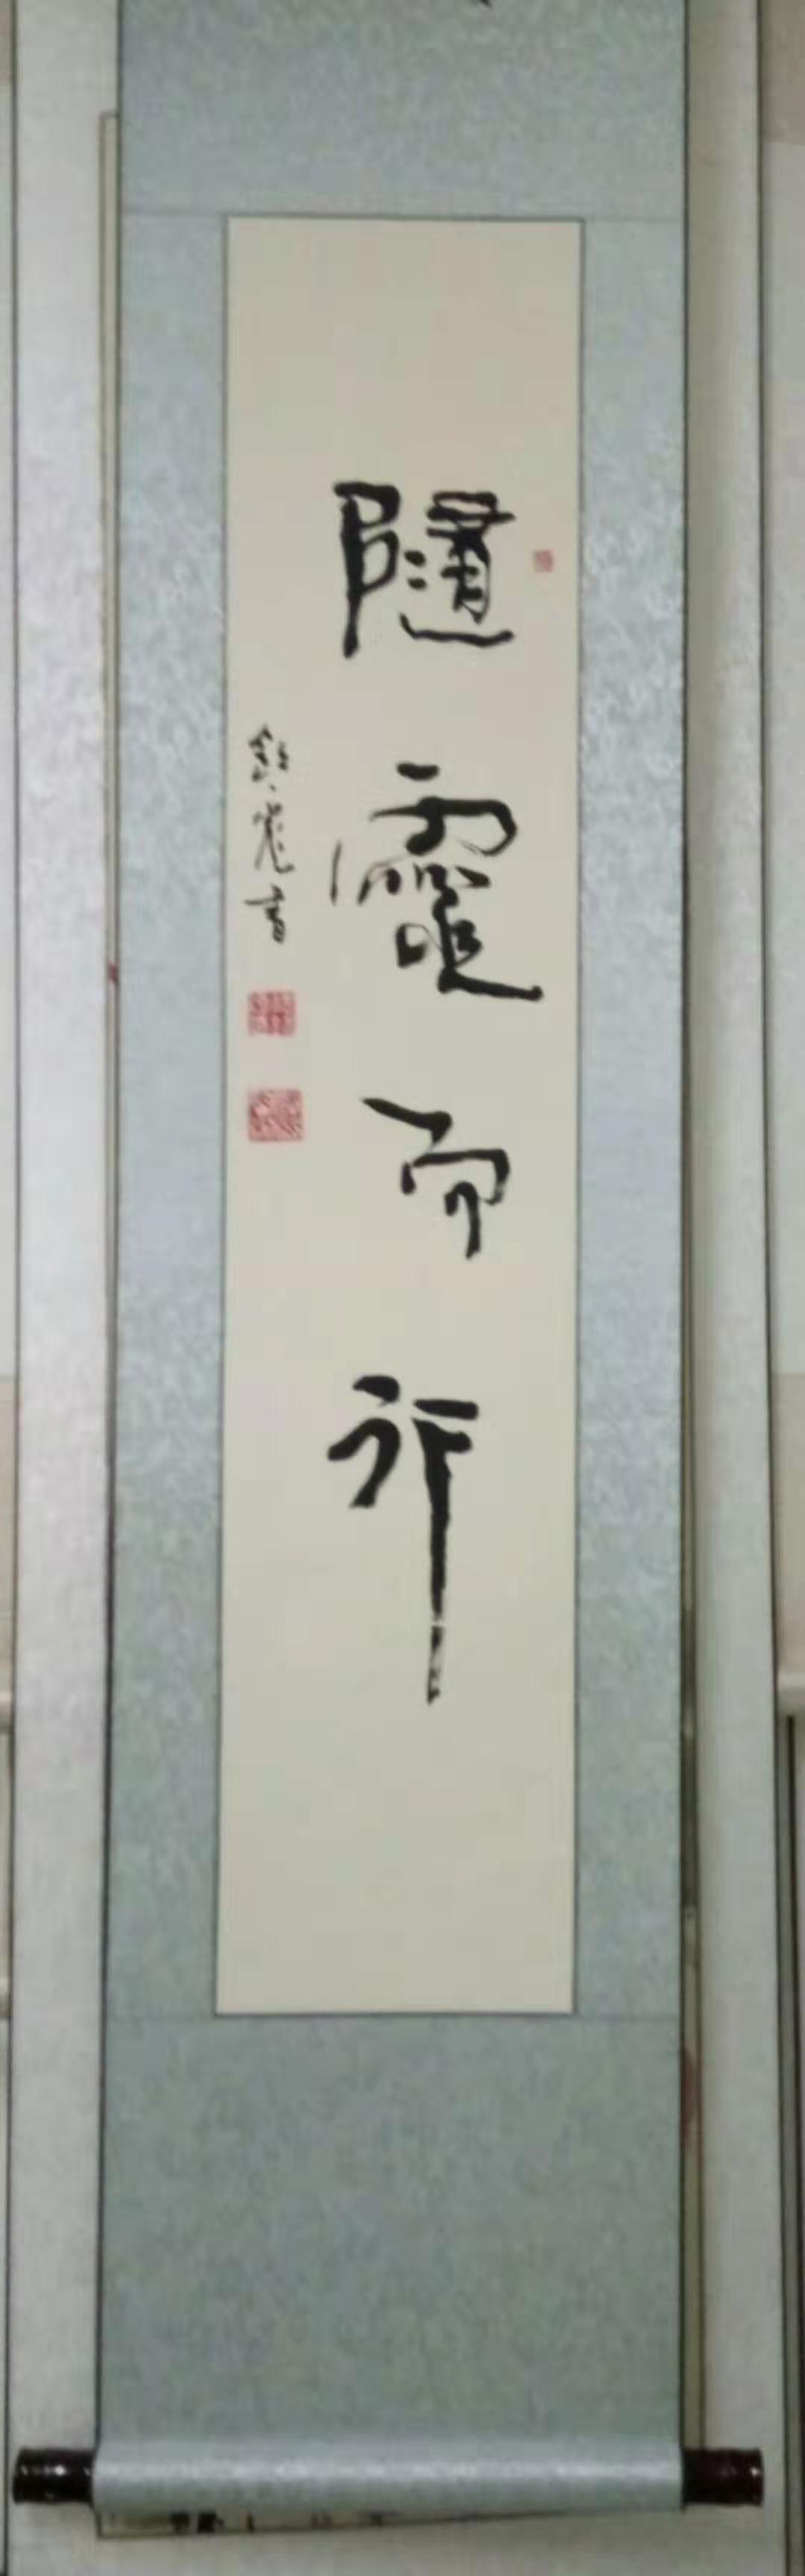 隨靈而行
書